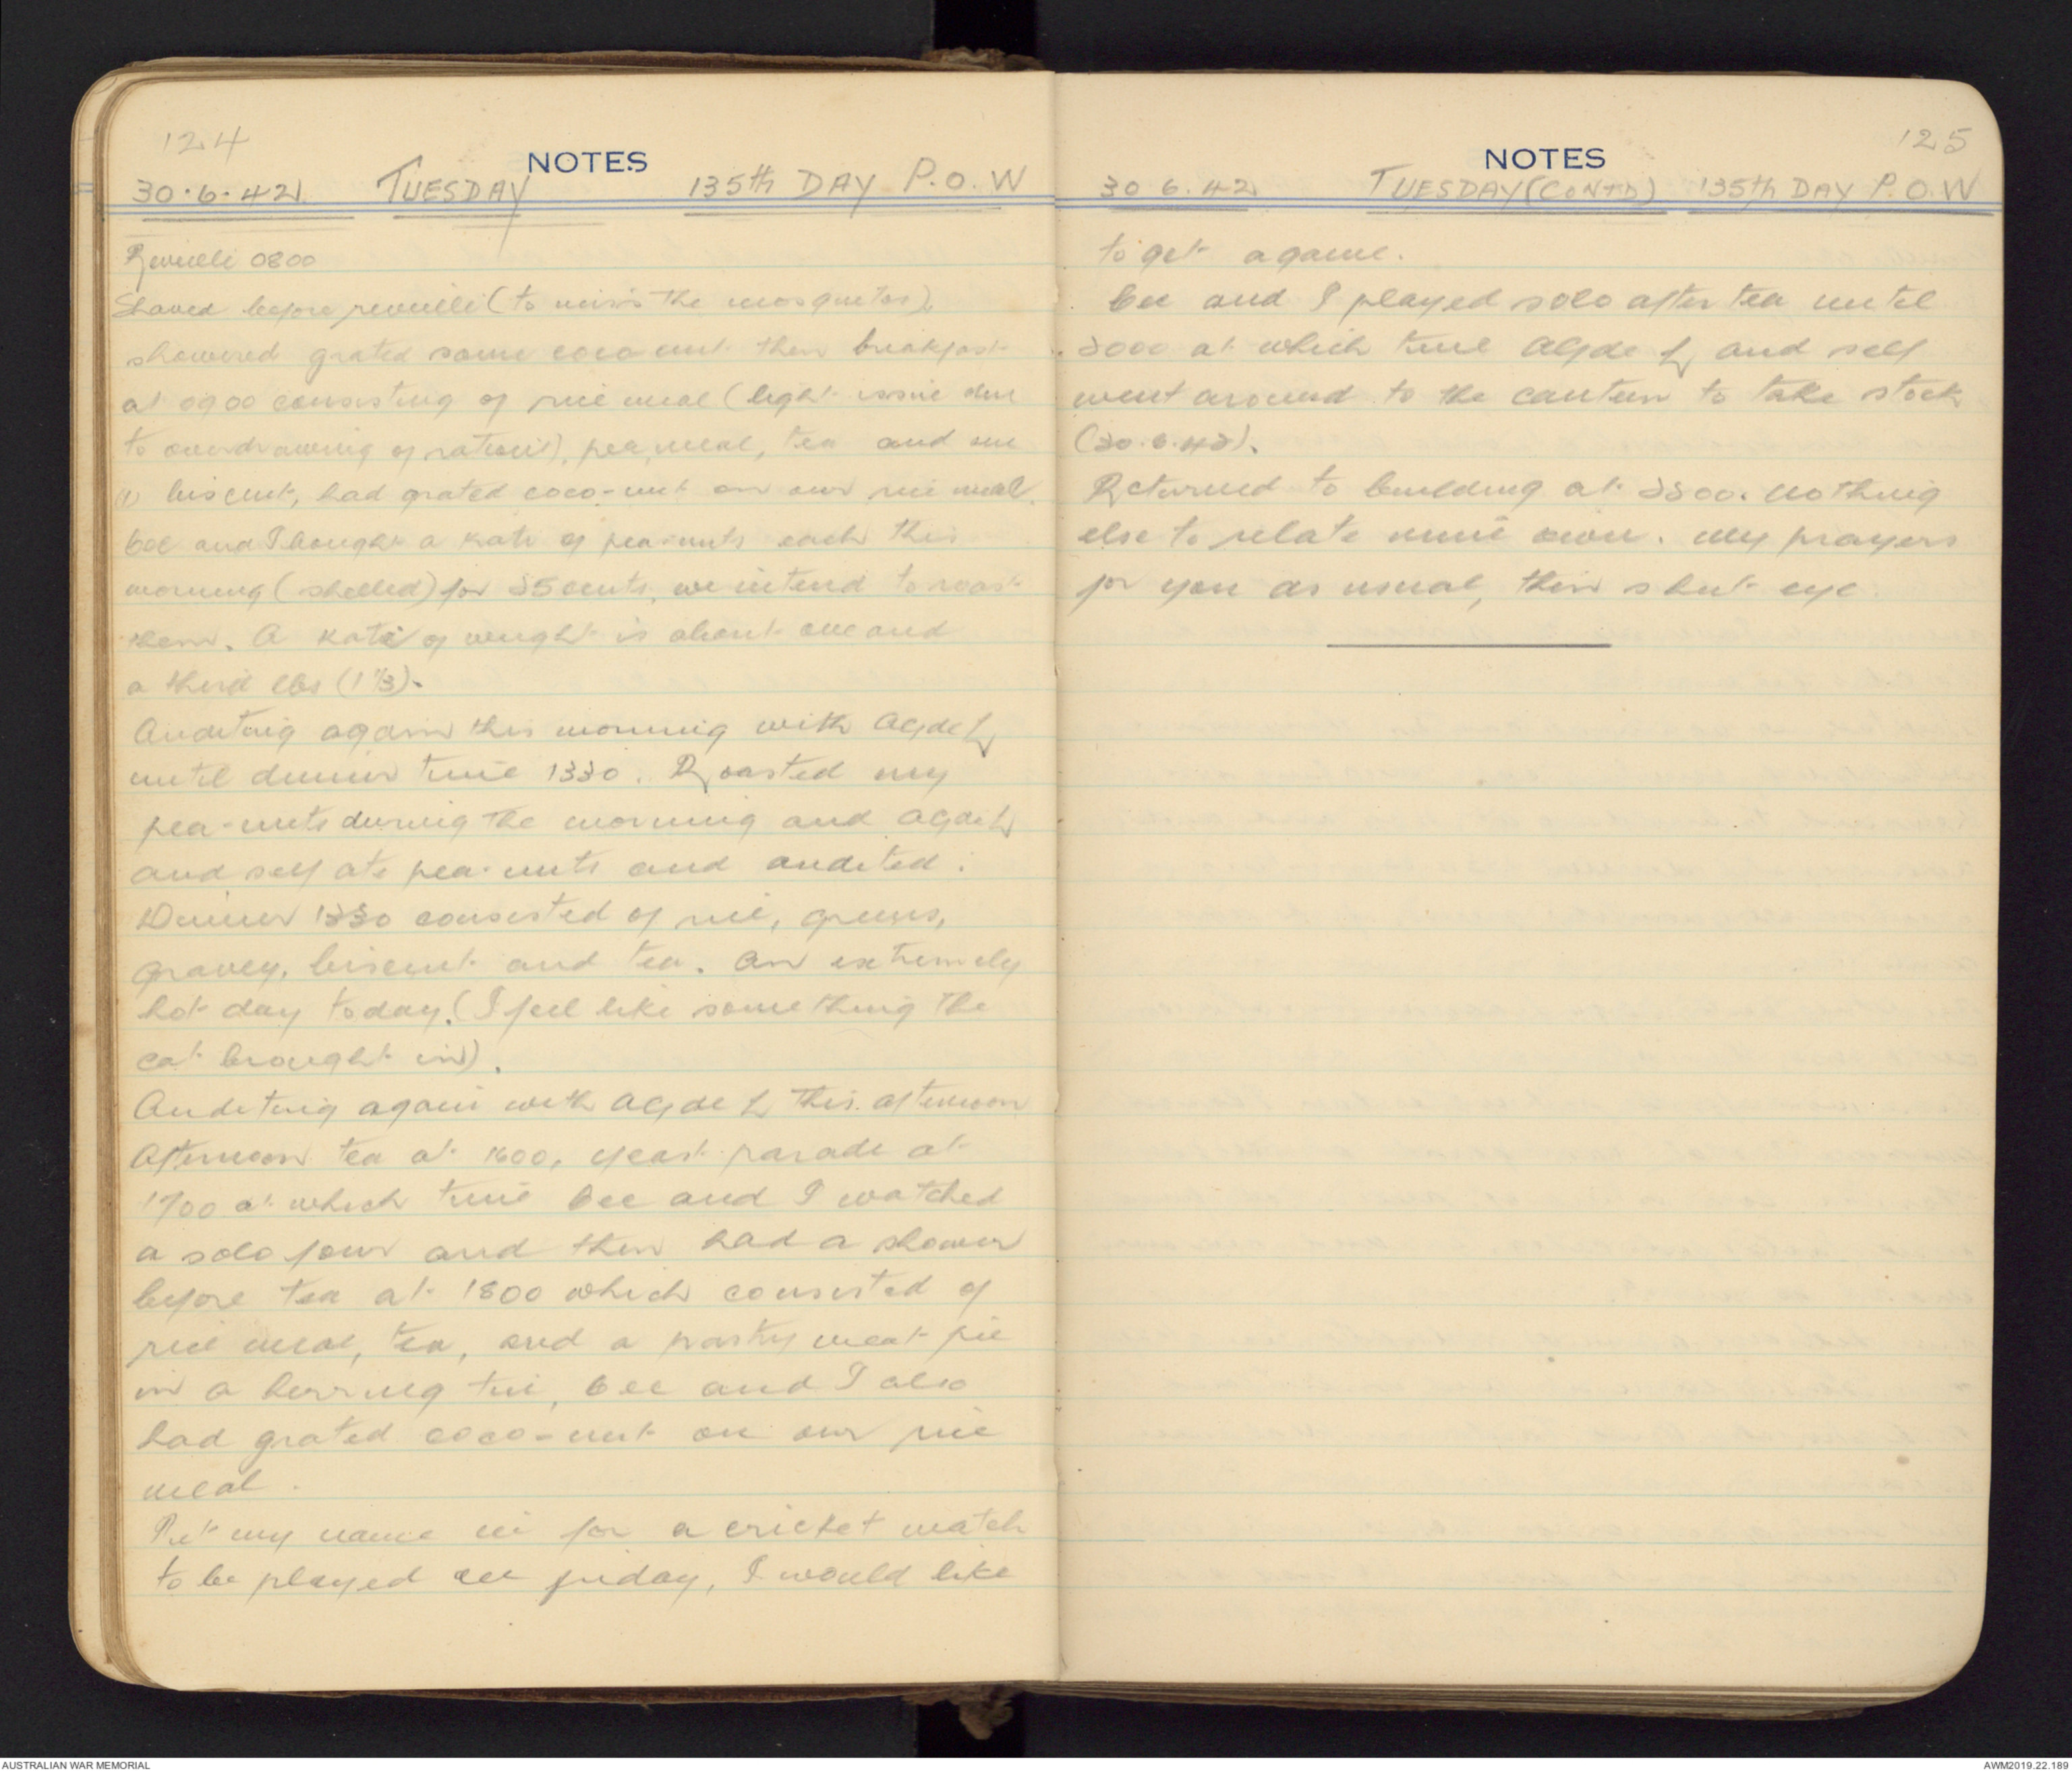 124
NOTES
30.6.42. TUESDAY 135th DAY P.O.W
Reveille 0800
Shaved before reveille (to miss the mosquitos),
showered grated some coco-nut then breakfast
at 0900 consisting of rice meal (light issue due
to overdrawing of rations), pea, meal, tea and one
(1) biscuit, had grated coco-nut on our rice meal.
and I bought a kati of pea-nuts each this
morning (shelled) for 25 cents, we intend to roast
them. A kati of weight is about one and
a third lbs (1 1/3).
Auditing again this morning with
until dinner time 1330. Roasted my
pea-nuts during the morning and
and self ate pea-nuts and audited.
Dinner 1330 consisted of rice, greens,
gravey, biscuit and tea. An extremely
hot day today. (I feel like something the
cat brought in).
Auditing again with this afternoon
Afternoon tea at 1600, yeast parade at
1700 at which time and I watched
a solo four and then had a shower
before tea at 1800 which consisted of
rice meal, tea, and a pasty meat pie
in a herring tin, and I also
had grated coco-nut on our rice
meal.
Put my name in for a cricket match
to be played on friday, I would like
125
NOTES
30 6.42 TUESDAY (CONTD) 135th DAY P.O.W
to get a game.
and I played solo after tea until
2000 at which time and self
went around to the canteen to take stock
(30.6.42).
Returned to building at 2200. Nothing
else to relate mine own. My prayers
for you as usual, then shut eye.
AUSTRALIAN WAR MEMORIAL
AWM2019.22.189